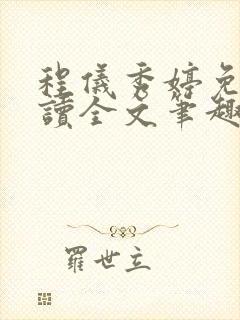 程儀秀婷免
讀全文筆趣
羅世立